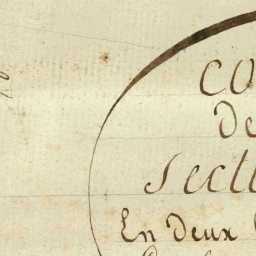 CO
de
Secti
En deux